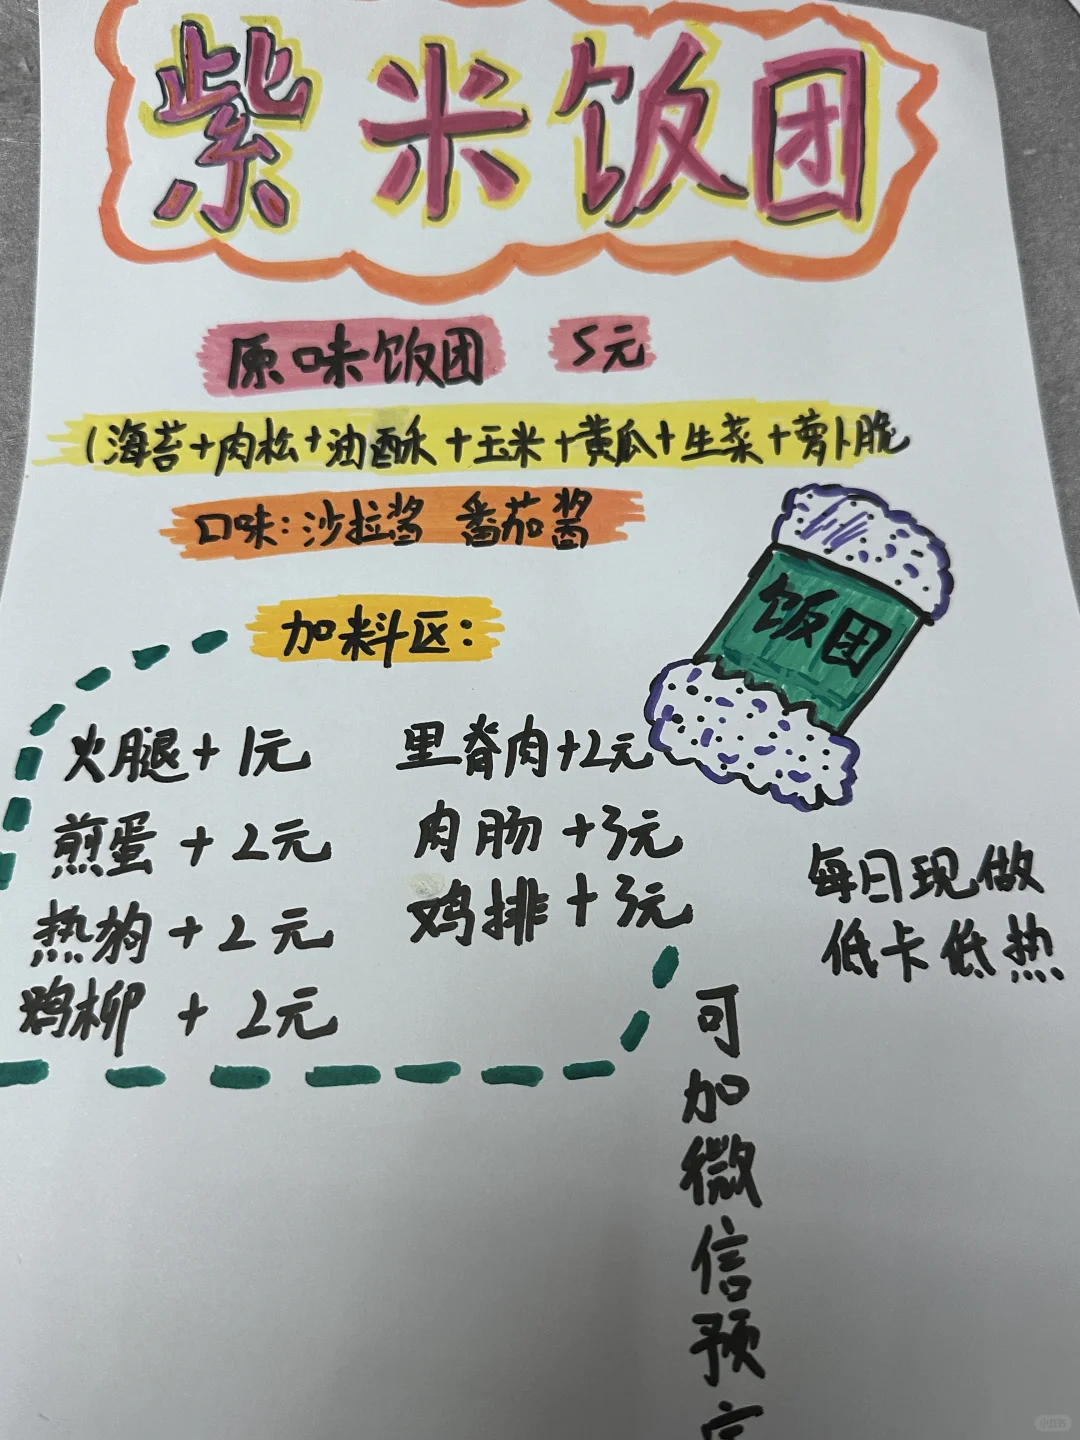 紫米饭团
原味饭团 5元
(海苔+肉松+油酥+玉米+黄瓜+生菜+萝卜脆
口味:沙拉酱 番茄酱
饭团
加料区:
火腿+1元 里脊肉+2元
煎蛋+2元 肉肠+3元
热狗+2元 鸡排+3元
鸡柳+2元
每日现做
低卡低热
可加微信预定
小红书